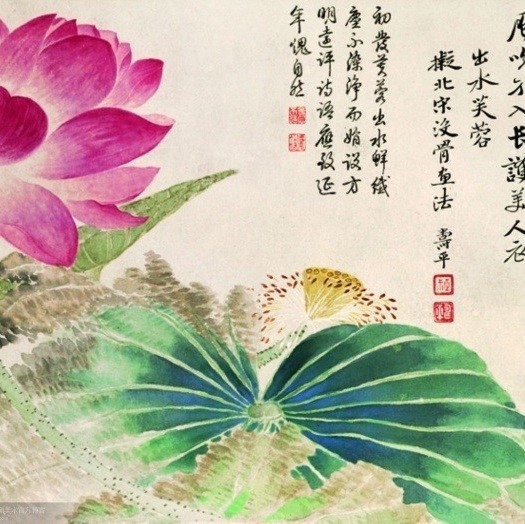 風吹不入長護美人衣
出水芙蓉
擬北宋沒骨畫法 壽平
初發芙蓉出水鮮纖
塵不染淨而娟設方
明遠評詩語應致延
年愧自然